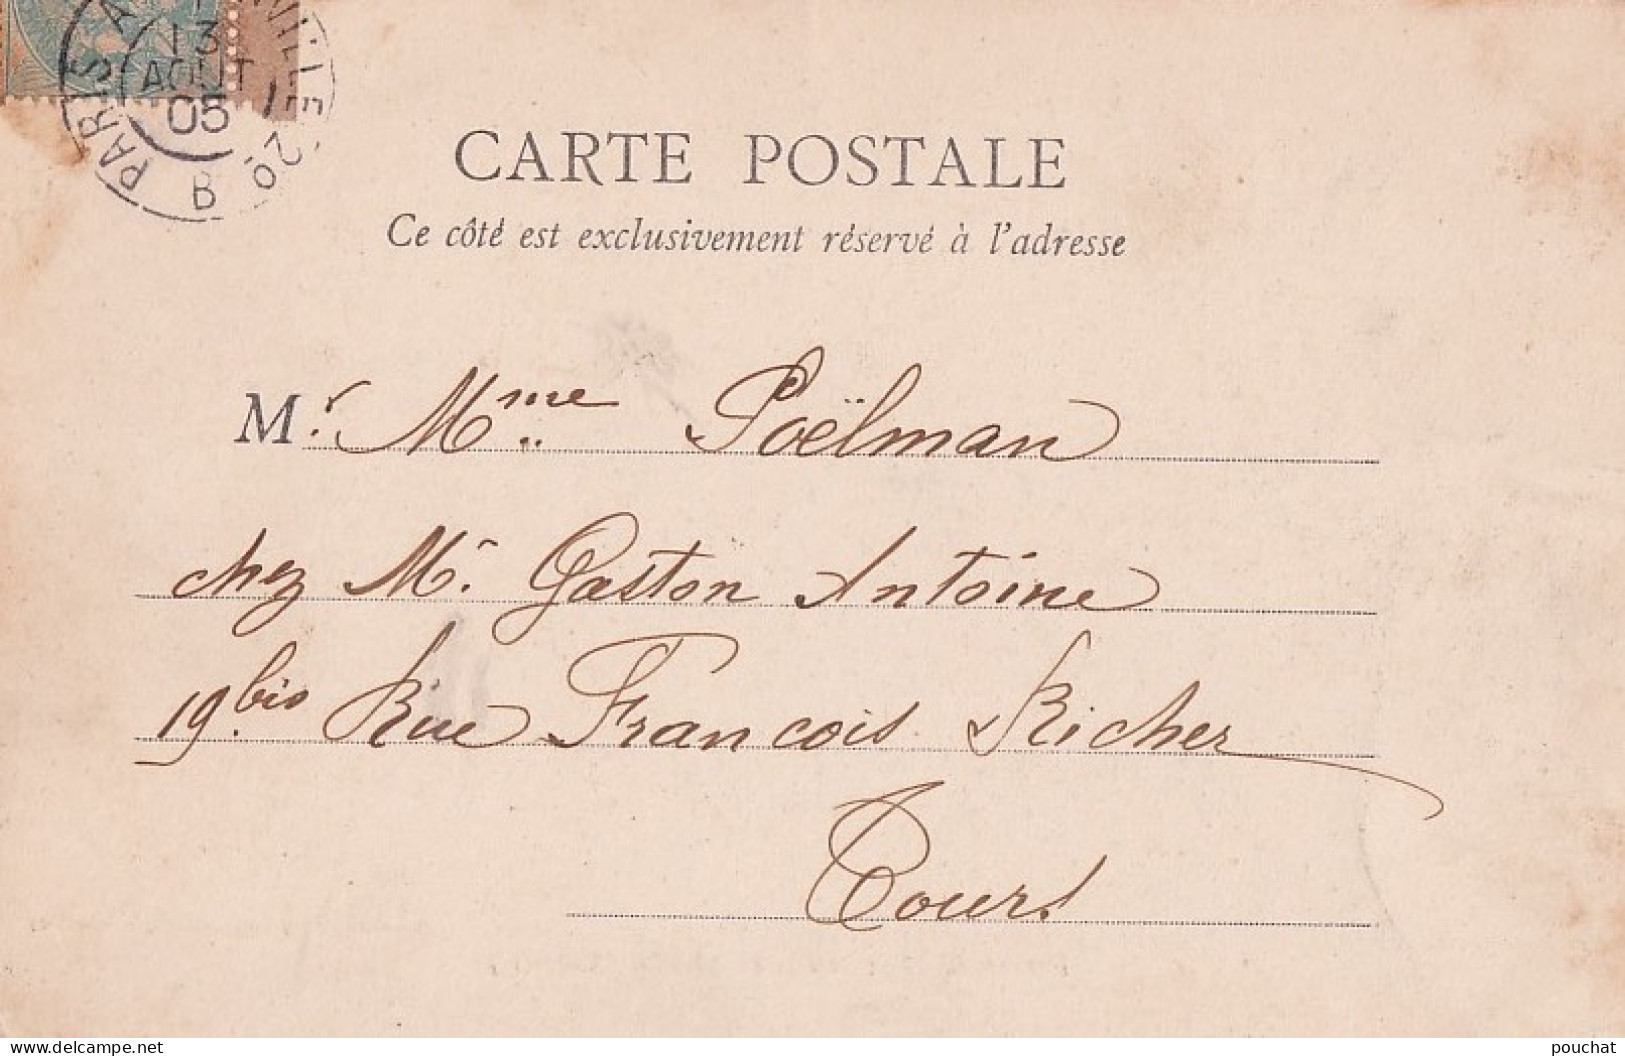 PARIS A 
13
AOUT
05
B
CARTE POSTALE
Ce côté est exclusivement réservé à l'adresse
M.r Mme Poëlman
chez Mr. Gaston Antoine
19 bis Rue François Richer
Tours
delcampe.net
pouchat